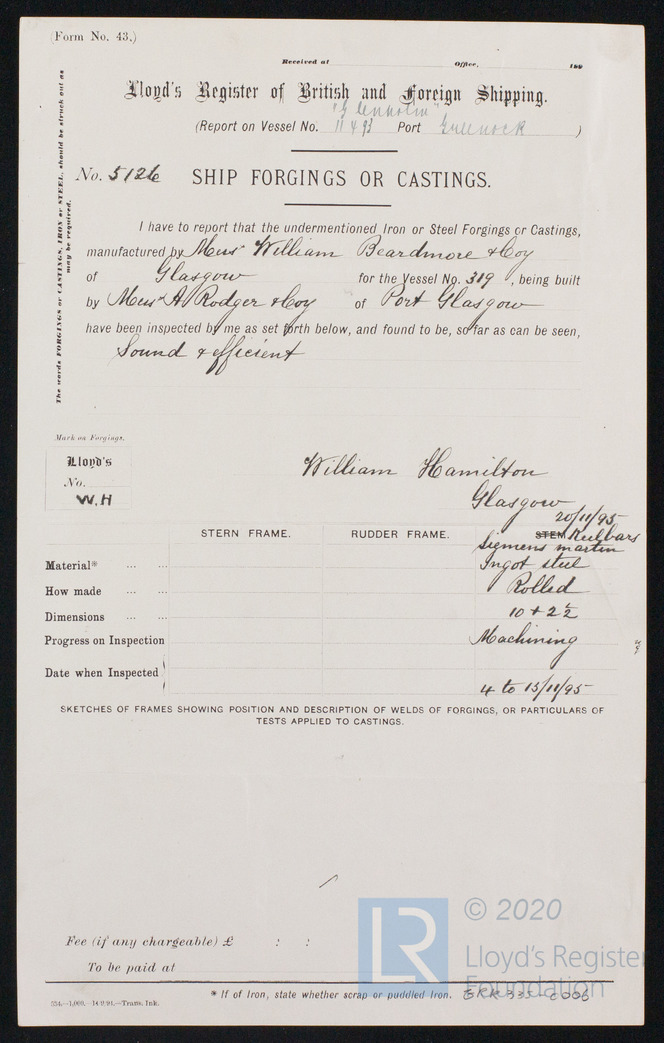 (Form No. 43.)
Received at Office, 189
Lloyd's Register of British and Foreign Shipping.
"Glenholm"
(Report on Vessel No. 11493 Port Greenock )
No. 5126 SHIP FORGINGS OR CASTINGS.
The words FORGINGS or CASTINGS, IRON or STEEL, should be struck out as
may be required.
I have to report that the undermentioned Iron or Steel Forgings or Castings,
manufactured by Messrs William Beardmore & Coy
of Glasgow for the Vessel No. 319, being built
by Messrs A. Rodger & Coy of Port Glasgow
have been inspected by me as set forth below, and found to be, so far as can be seen,
Sound & efficient
Mark on Forgings.
Lloyd's
No.
W.H
William Hamilton
Glasgow
20/11/95
STERN FRAME. RUDDER FRAME. STEM Keelbars
Siemens martin
Material* ... ... Ingot steel
How made ... ... Rolled
Dimensions ... ... 10 + 2 1/2
Progress on Inspection Machining
Date when Inspected 4 to 15/11/95
SKETCHES OF FRAMES SHOWING POSITION AND DESCRIPTION OF WELDS OF FORGINGS, OR PARTICULARS OF
TESTS APPLIED TO CASTINGS.
Fee (if any chargeable) £ : :
To be paid at
* If of Iron, state whether scrap or puddled Iron. GRK335-0006
LR
© 2020
Lloyd's Register
Foundation